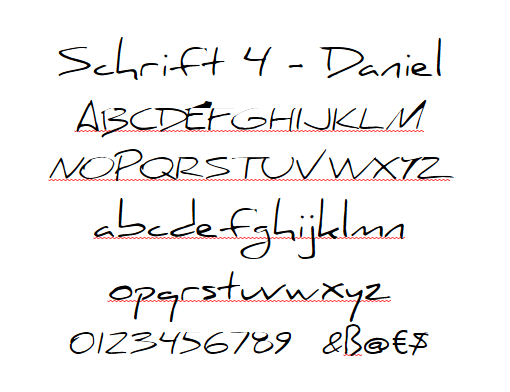 Schrift 4 - Daniel
ABCDEFGHIJKLM
NOPQRSTUVWXYZ
abcdefghijklmn
opqrstuvwxyz
0123456789 &ß@€$